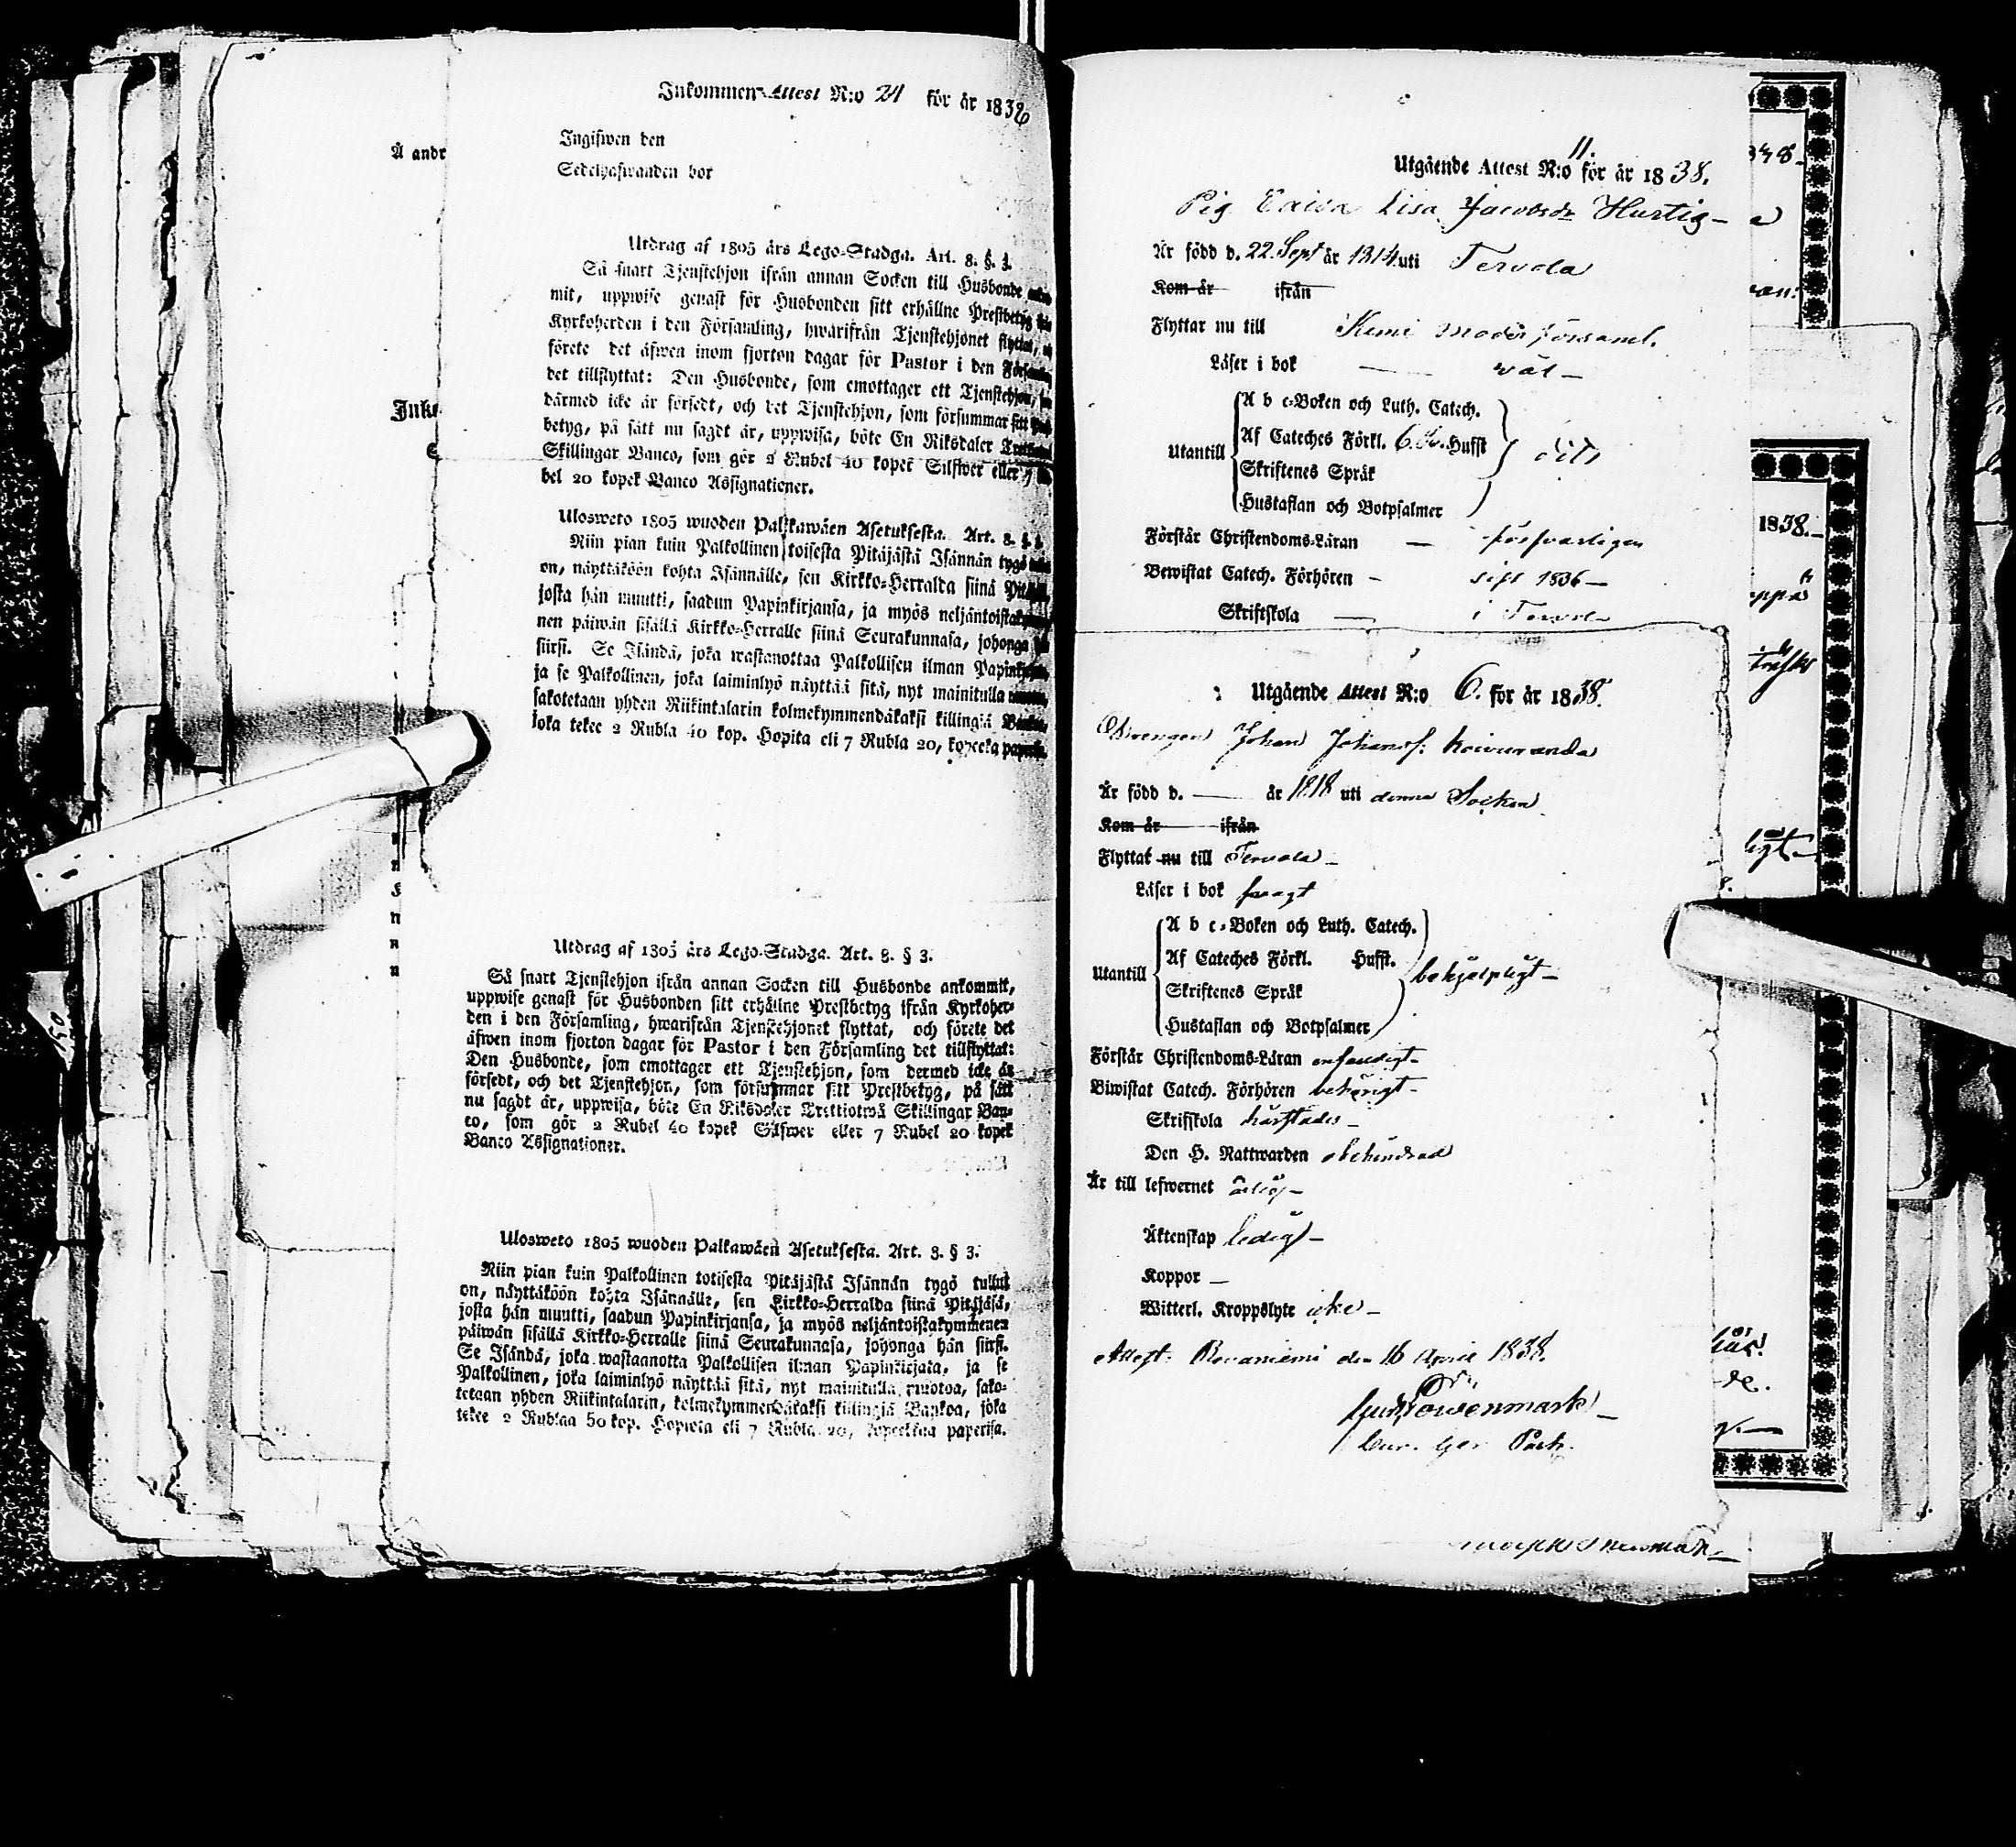 Inkommen Attest N:o 21 för år 1838
Ingifwen den
Sedelhafwanden bor
Å andr
Utdrag af 1805 års Lego-Stadga. Art. 8. §. 3.
Så snart Tjenstehjon ifrån annan Socken till Husbonde
mit, uppwise genast för Husbonden sitt erhållne Prestbetyg
Kyrkoherden i den Församling, hwarifrån Tjenstehjonet flyttat,
förete det äfwen inom fjorton dagar för Pastor i den
det tillflyttat: Den Husbonde, som emottager ett Tjenstehjon,
därmed icke är försedt, och det Tjenstehjon, som försummar sitt
betyg, på sätt nu sagdt är, uppwisa, böte En Riksdaler
Skillingar Banco, som gör 2 Rubel 40 kopek Silfwer eller 7
bel 20 kopek Banco Assignationer.
Ulosweto 1805 wuoden Palkkawäen Asetuksesta. Art. 8. §. 3.
Niin pian kuin Palkollinen toisesta Pitäjästä Isännän tygö
on, näyttäköön kohta Isännälle, sen Kirkko-Herralda siinä
josta hän muutti, saadun Papinkirjansa, ja myös
nen päiwän sisällä Kirkko-Herralle siinä Seurakunnasa, johonga
siirsi. Se Isändä, joka wastanottaa Palkollisen ilman
ja se Palkollinen, joka laiminlyö näyttää sitä, nyt mainitulla
sakotetaan yhden Riikintalarin kolmekymmendäkaksi killingiä
joka tekee 2 Rubla 40 kop. Hopita eli 7 Rubla 20, kopeeka
Utdrag af 1805 års Lego-Stadga. Art. 8. § 3.
Så snart Tjenstehjon ifrån annan Socken till Husbonde ankommit,
uppwise genast för Husbonden sitt erhållne Prestbetyg ifrån Kyrkoher-
den i den Församling, hwarifrån Tjenstehjonet flyttat, och förete det
äfwen inom fjorton dagar för Pastor i den Församling det tillflyttat:
Den Husbonde, som emottager ett Tjenstehjon, som dermed icke är
försedt, och det Tjenstehjon, som försummar sitt Prestbetyg, på sätt
nu sagdt är, uppwisa, böte En Riksdaler Trettiotwå Skillingar Ban-
co, som gör 2 Rubel 40 kopek Silfwer eller 7 Rubel 20 kopek
Banco Assignationer.
Ulosweto 1805 wuoden Palkawäen Asetuksesta. Art. 8. § 3.
Niin pian kuin Palkollinen totisesta Pitäjästä Isännän tygö tullut
on, näyttäköön kohta Isännälle, sen Kirkko-Herralda siinä Pitäjäsä,
josta hän muutti, saadun Papinkirjansa, ja myös neljäntoistakymmenen
päiwän sisällä Kirkko-Herralle siinä Seurakunnasa, johonga hän siirsi.
Se Isändä, joka wastaanotta Palkollisen ilman Papinkirjata, ja se
Palkollinen, joka laiminlyö näyttää sitä, nyt mainitulla muotoa, sako-
tetaan yhden Riikintalarin, kolmekymmendäkaksi killingiä Bankoa, joka
tekee 2 Rublaa 50 kop. Hopiata eli 7 Rubla 20, kopeekkaa paperisa.
Utgående Attest N:o 11. för år 1838.
Pig. Caisa Lisa Jacobsdr Hurtig
Är född d. 22 Sept år 1814 uti Tervola
Kom år ifrån
Flyttar nu till Kemi moderförsaml.
Läser i bok wäl
A b c-Boken och Luth. Catech.
Af Cateches Förkl. 6. Hufst
Utantill
Skriftenes Språk
Hustaflan och Botpsalmer
dito
Förstår Christendoms-Läran försvarligen
Bewistat Catech. Förhören sist 1836
Skriftskola i Tervola
Utgående Attest N:o 6. for år 1838.
Drengen Johan Johanss. Koivuranda
Är född d. år 1818 uti denna Socken
Kom år ifrån
Flyttat nu till Tervola
Läser i bok swagt
A b c-Boken och Luth. Catech.
Af Cateches Förkl. Hufst.
Utantill
Skriftenes Språk
Hustaflan och Botpsalmer
behjelpligt
Förstår Christendoms-Läran enfaldigt
Biwistat Catech. Förhören behörigt
Skriftskola härstädes
Den H. Nattwarden obehindrad
Är till lefwernet ärlig
Äktenskap ledig
Koppor
Witterl. Kroppslyte icke
Attest. Rovaniemi den 16 April 1838.
1838.